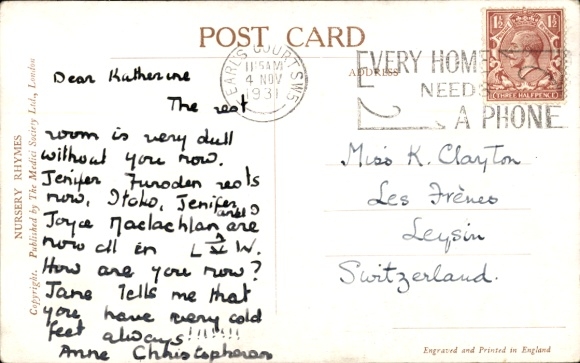 POST CARD
ADDRESS
EARLS COURT S.W.5
11.15AM
4 NOV
1931
EVERY HOME
NEEDS
A PHONE
1½
1½
THREE HALFPENCE
NURSERY RHYMES
Copyright. Published by The Medici Society Ltd., London
Dear Katherine
The rest
room is very dull
without you now.
Jenifer rests
now, Jenifer,
and I
Joyce Maclachlan are
now all in L V W.
How are you now?
Jane tells me that
you have very cold
feet always!!!!!!!
Anne Christopherson
Miss K. Clayton
Les Frênes
Leysin
Switzerland.
Engraved and Printed in England